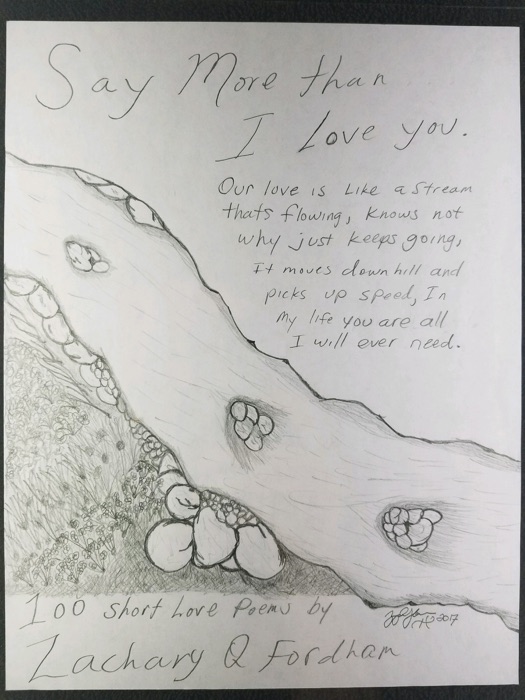 Say More than
I Love you.
Our love is Like a Stream
thats flowing, Knows not
why just keeps going,
It moves down hill and
picks up speed, In
my life you are all
I will ever need.
100 short Love Poems by
2017
Zachary Q Fordham